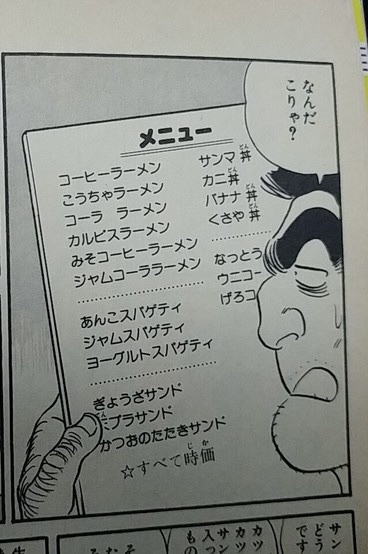 なんだ
こりゃ？
メニュー
コーヒーラーメン
こうちゃラーメン
コーラ ラーメン
カルピスラーメン
みそコーヒーラーメン
ジャムコーララーメン
あんこスパゲティ
ジャムスパゲティ
ヨーグルトスパゲティ
ぎょうざサンド
プラサンド
かつおのたたきサンド
☆すべて時価
サンマ丼
カニ丼
バナナ丼
くさや丼
なっとう
ウニコー
げろコ